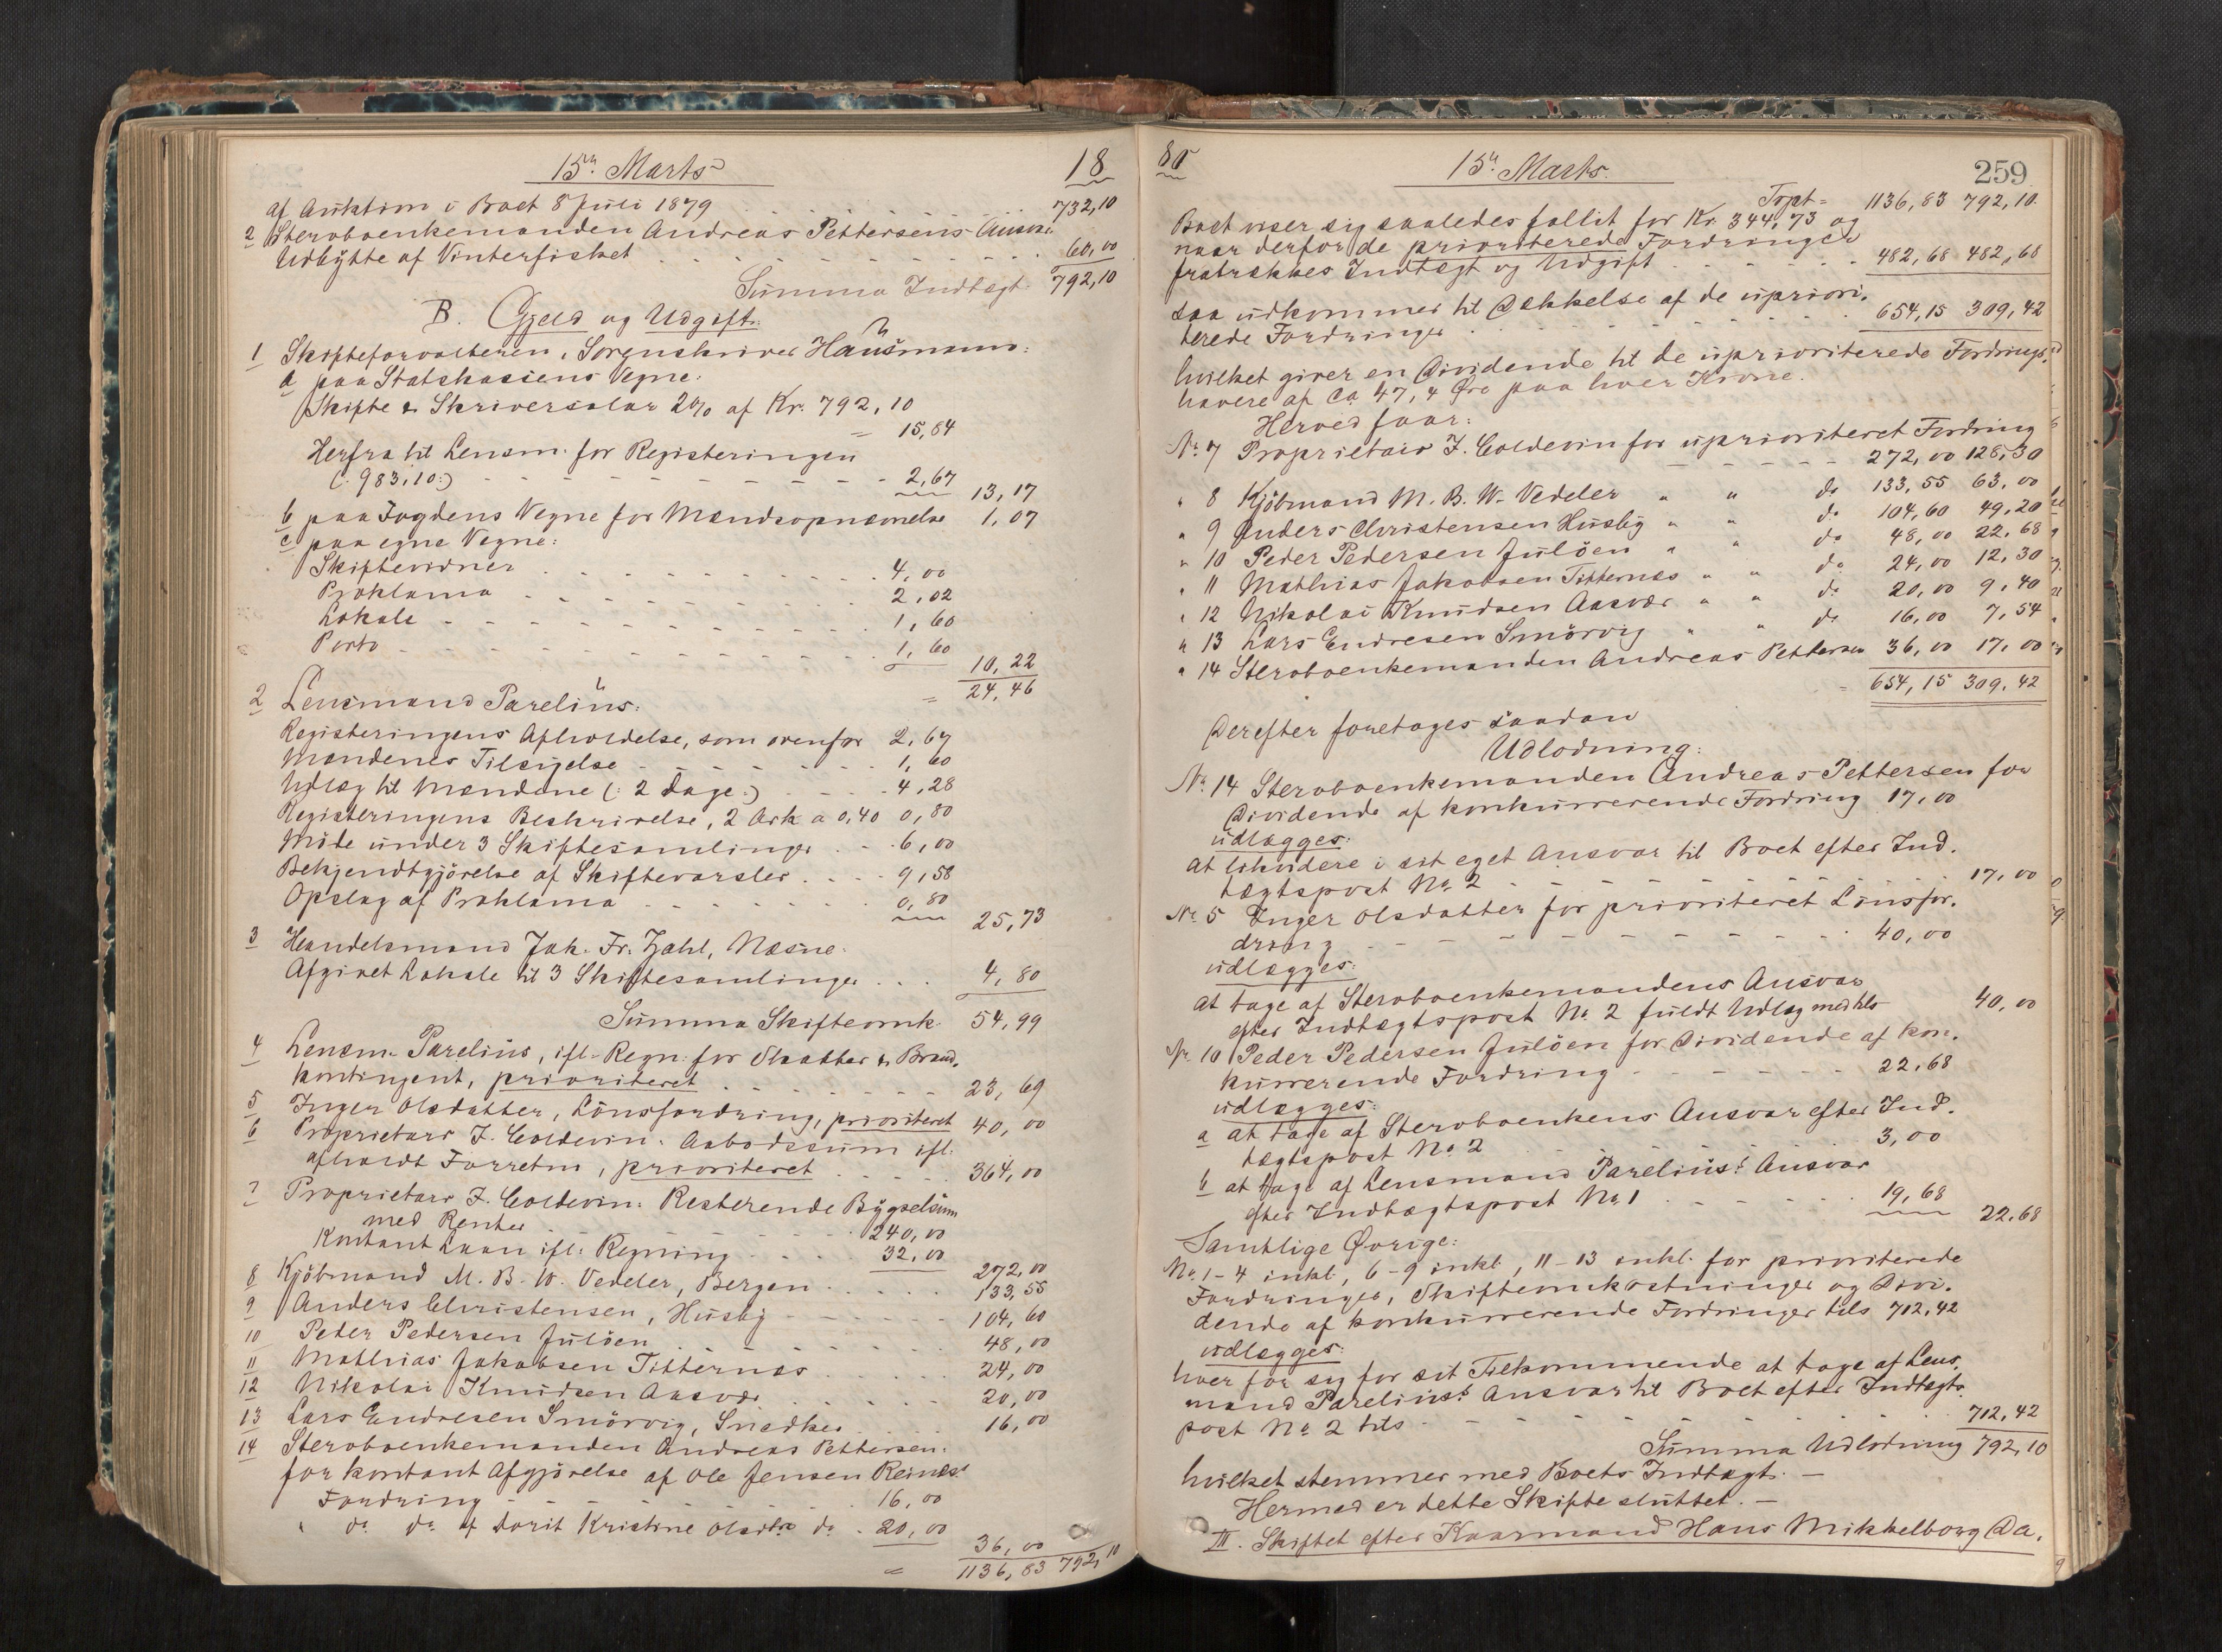 15de Marts 18
af Auktion i Boet 8 Juli 1879 . . . 732,10
2 Stervboenkemanden Andreas Pettersens Ansvar
Udbytte af Vinterfisket . . . 60,00
Summa Indtægt 792,10
B. Gjeld og Udgift.
1 Skifteforvalteren, Sorenskriver Hausmann:
a paa Statskassens Vegne:
Skifte & Skriversalar 2% af Kr. 792,10
= 15,84
Herfra til Lensm. for Registeringen
(: 983,10:) - - - 2,67
13,17
b paa Fogdens Vegne for Mændsopnævnelse 1,07
c paa egne Vegne:
Skiftevidner . . . 4,00
Proklama . . . 2,02
Lokale - - - 1,60
Porto - - - 1,60
10,22
= 24,46
2 Lensmand Parelius:
Registeringens Afholdelse, som ovenfor 2,67
Mændenes Tilsigelse - - - 1,60
Udlæg til Mændene (: 2 Dage:) - - - 4,28
Registeringens Beskrivelse, 2 Ark a 0,40 0,80
Møde under 3 Skiftesamlinger - - - 6,00
Bekjendtgjørelse af Skiftevarsler . . . 9,58
Opslag af Proklama - - - 0,80
25,73
3 Handelsmand Jak. Fr. Zahl, Næsne:
Afgivet Lokale til 3 Skiftesamlinger . . . 4,80
Summa Skifteomk. 54,99
4 Lensm. Parelius, ifl. Regn. for Skatter & Brand.
kontingent, prioriteret . . . 23,69
5 Inger Olsdatter, Lönsfordring, prioriteret 40,00
6 Proprietær J. Coldevin: Aabodssum ifl.
afholdt Forretn, prioriteret . . . 364,00
7 Proprietær J. Coldevin: Resterende Bygselsum
med Renter . . . 240,00
Kontant Laan ifl. Regning - - - 32,00
272,00
8 Kjöbmand M. B. W. Vedeler, Bergen . . . 133,55
9 Anders Christensen, Husby - - - 104,60
10 Peder Pedersen Julöen . . . 48,00
11 Mathias Jakobsen Titternæs . . . 24,00
12 Nikolai Knudsen Aasvær . . . 20,00
13 Lars Endresen Smörvig, Snedker . . . 16,00
14 Stervboenkemanden Andreas Pettersen:
for kontant Afgjörelse af Ole Jensen Reinæs's
Fordring - - - 16,00
" do do af Dorit Kristine Olsdtr do - 20,00
36,00
= 1136,83 792,10
80 15de Marts. 259
Trpt = 1136,83 792,10
Boet viser sig saaledes fallit for Kr. 344,73 og
naar derfor de prioriterede Fordringer
fratrækkes Indtægt og Udgift - - - 482,68 482,68
saa udkommer til Dækkelse af de upriori-
terede Fordringer . . . 654,15 309,42
hvilket giver en Dividende til de uprioriterede Fordrings-
havere af Ca 47,4 Øre paa hver Krone.
Herved faar:
No. 7 Proprietær J. Coldevin for uprioriteret Fordring
- - - 272,00 128,30
" 8 Kjöbmand M. B. W. Vedeler " " do 133,55 63,00
" 9 Anders Christensen Husby " " do 104,60 49,20
" 10 Peder Pedersen Julöen " " do 48,00 22,68
" 11 Mathias Jakobsen Titternæs " " do 24,00 12,30
" 12 Nikolai Knudsen Aasvær " " do 20,00 9,40
" 13 Lars Endresen Smörvig " " do 16,00 7,54
" 14 Stervboenkemanden Andreas Pettersen 36,00 17,00
= 654,15 309,42
Derefter foretages saadan
Udlodning:
No. 14 Stervboenkemanden Andreas Pettersen for
Dividende af konkurrerende Fordring 17,00
udlægges:
at likvidere i sit eget Ansvar til Boet efter Ind-
tægtspost No 2 - - - 17,00
No. 5 Inger Olsdatter for prioriteret Lönsfor-
dring - - - 40,00
udlægges:
at tage af Stervboenkemandens Ansvar
efter Indtægtspost No. 2 fuldt Udlæg med tils 40,00
No. 10 Peder Pedersen Julöen for Dividende af kon-
kurrerende Fordring - - - 22,68
udlægges:
a at tage af Stervboenkens Ansvar efter Ind-
tægtspost No 2 - - - 3,00
b at tage af Lensmand Parelius's Ansvar
efter Indtægtspost No. 1 - - - 19,68
22,68
Samtlige Øvrige:
No. 1-4 inkl., 6-9 inkl., 11-13 inkl. for prioriterede
Fordringer, Skifteomkostninger og Divi-
dende af konkurrerende Fordringer tils 712,42
udlægges:
hver for sig for sit Tilkommende at tage af Lens-
mand Parelius's Ansvar til Boet efter Indtægts-
post No 2 tils - - - 712,42
Summa Udlodning 792,10
hvilket stemmer med Boets Indtægt. —
Hermed er dette Skifte sluttet. —
III. Skiftet efter Kaarmand Hans Mikkelborg Da.